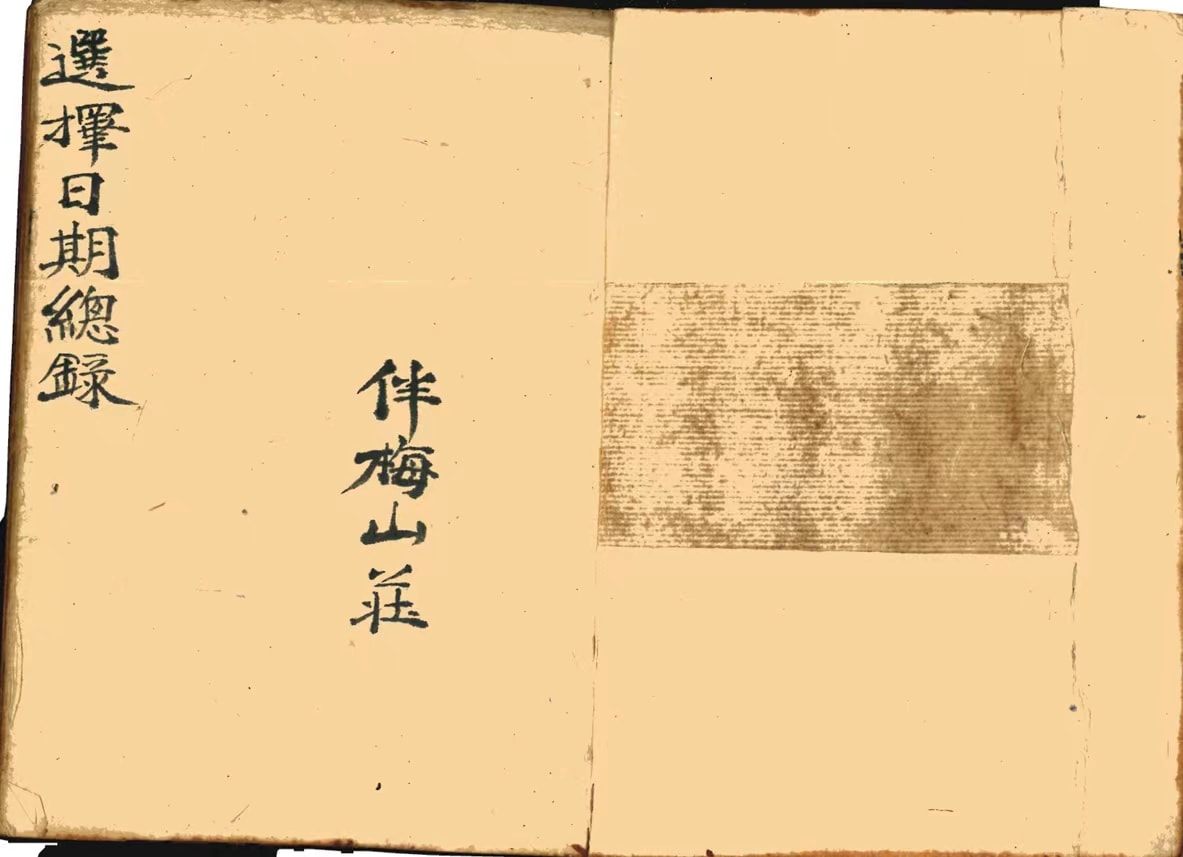 選擇日期總錄
伴梅山莊